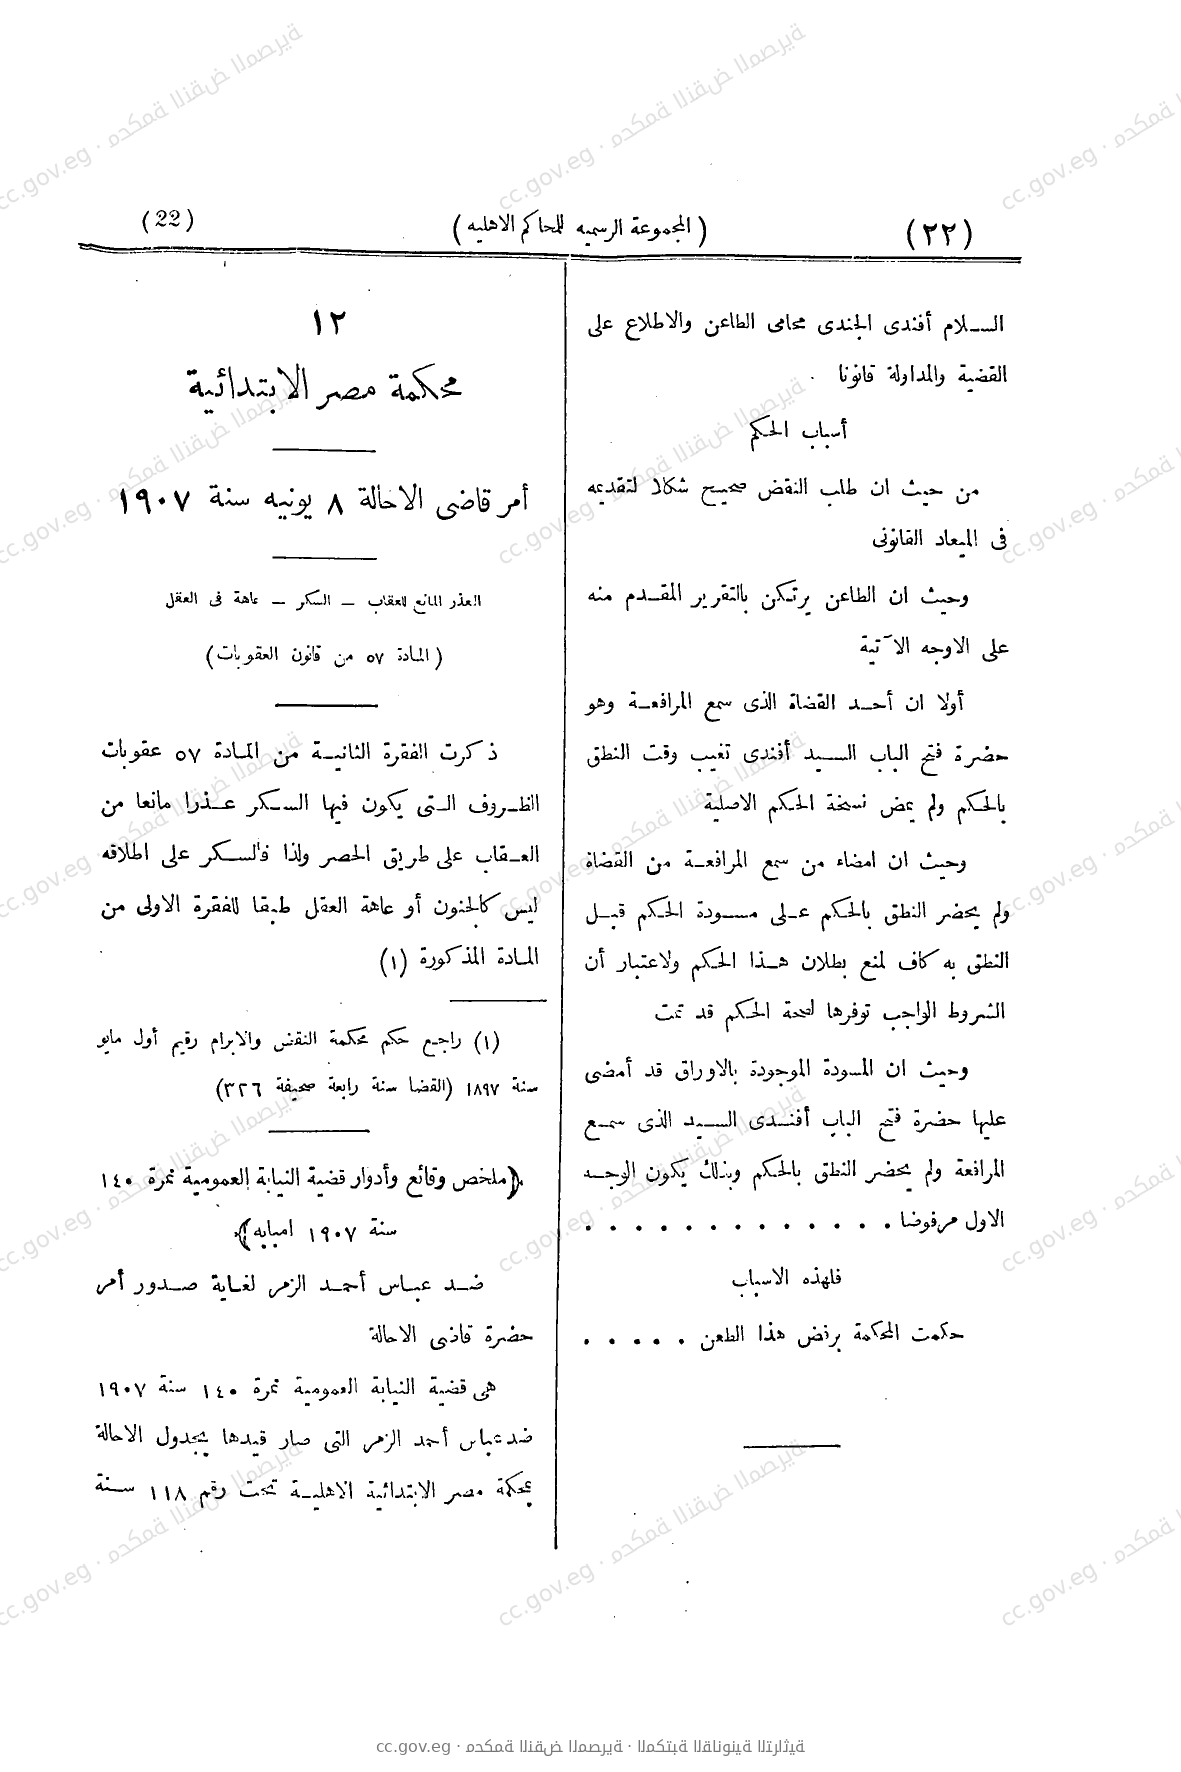 (٢٢)
(المجموعة الرسميه للمحاكم الاهليه)
(22)
الســلام أفندى الجندى محامى الطاعن والاطلاع على
القضية والمداولة قانونا
أسباب الحكم
من حيث ان طلب النقض صحيح شكلا لتقديمه
فى الميعاد القانونى
وحيث ان الطاعن يرتكن بالتقرير المقــدم منه
على الاوجه الآتية
أولا ان أحــد القضاة الذى سمع المرافعــة وهو
حضرة فتح الباب الســيد أفندى تغيب وقت النطق
بالحكم ولم يمض نسخة الحكم الاصلية
وحيث ان امضاء من سمع المرافعــة من القضاة
ولم يحضر النطق بالحكم عــلى مســودة الحكم قبــل
النطق به كاف لمنع بطلان هــذا الحكم ولاعتبار أن
الشروط الواجب توفرها لصحة الحكم قد تمت
وحيث ان المسودة الموجودة بالاوراق قد أمضى
عليها حضرة فتح الباب أفنــدى الســيد الذى سمــع
المرافعة ولم يحضر النطق بالحكم وبذلك يكون الوجــه
الاول مرفوضا . . . . . . . . . . . . .
فلهذه الاسباب
حكمت المحكمة برفض هذا الطعن . . . . .
١٢
محكمة مصر الابتدائية
أمر قاضى الاحالة ٨ يونيه سنة ١٩٠٧
العذر المانع للعقاب – السكر – عاهة فى العقل
(المادة ٥٧ من قانون العقوبات)
ذكرت الفقرة الثانيــة من المادة ٥٧ عقوبات
الظــروف الــتى يكون فيها الســكر عــذرا مانعا من
العــقاب على طريق الحصر ولذا فالســكر على اطلاقه
ليس كالجنون أو عاهة العقل طبقا للفقرة الاولى من
المادة المذكورة (١)
(١) راجع حكم محكمة النقض والابرام رقيم أول مايو
سنة ١٨٩٧ (القضا سنة رابعة صحيفة ٣٢٦)
﴿ملخص وقائع وأدوار قضية النيابة العمومية نمرة ١٤٠
سنة ١٩٠٧ امبابه﴾
ضــد عبــاس أحمــد الزمر لغــاية صــدور أمر
حضرة قاضى الاحالة
هى قضية النيابة العمومية نمرة ١٤٠ سنة ١٩٠٧
ضد عباس أحمد الزمر التى صار قيدها بجدول الاحالة
بمحكمة مصر الابتدائية الاهليــة تحت رقم ١١٨ ســنة
cc.gov.eg · محكمة النقض المصرية · المكتبة القانونية التراثية